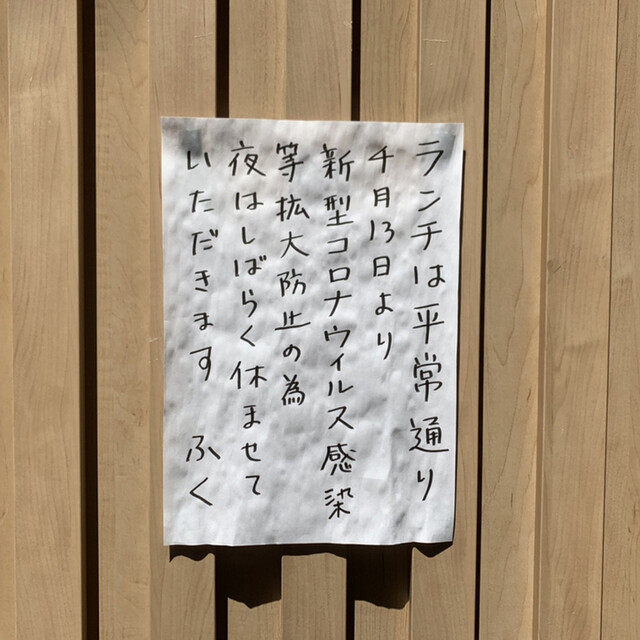 ランチは平常通り
4月13日より
新型コロナウィルス感染
等拡大防止の為
夜はしばらく休ませて
いただきます ふく